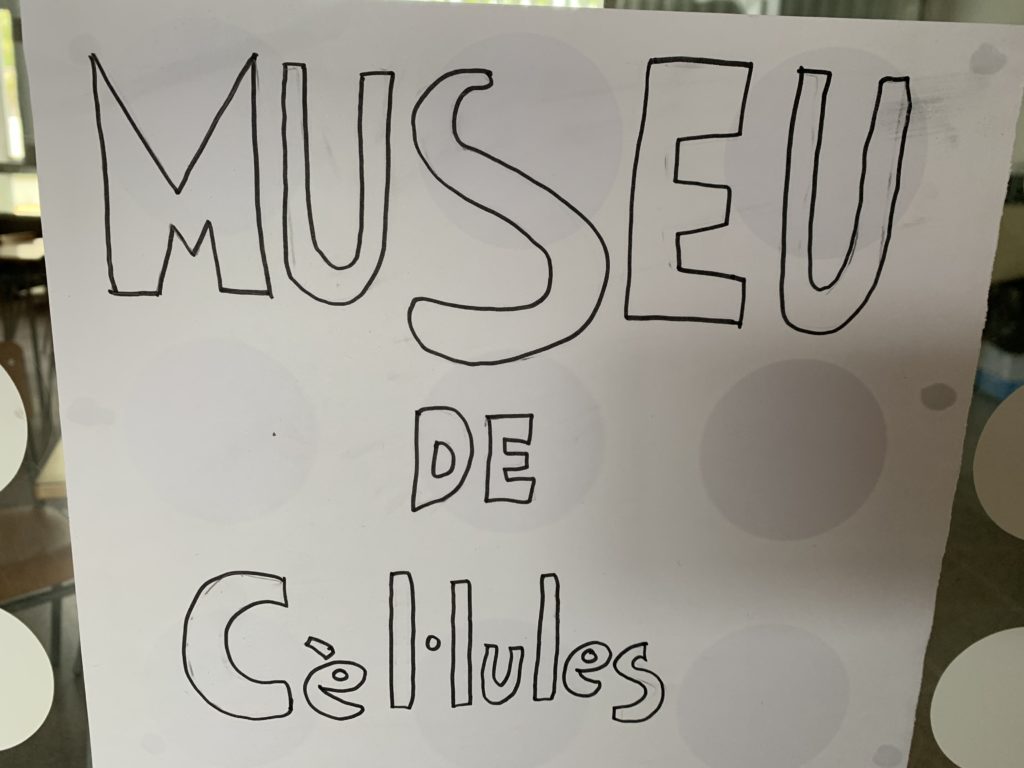 MUSEU
DE
Cèl·lules